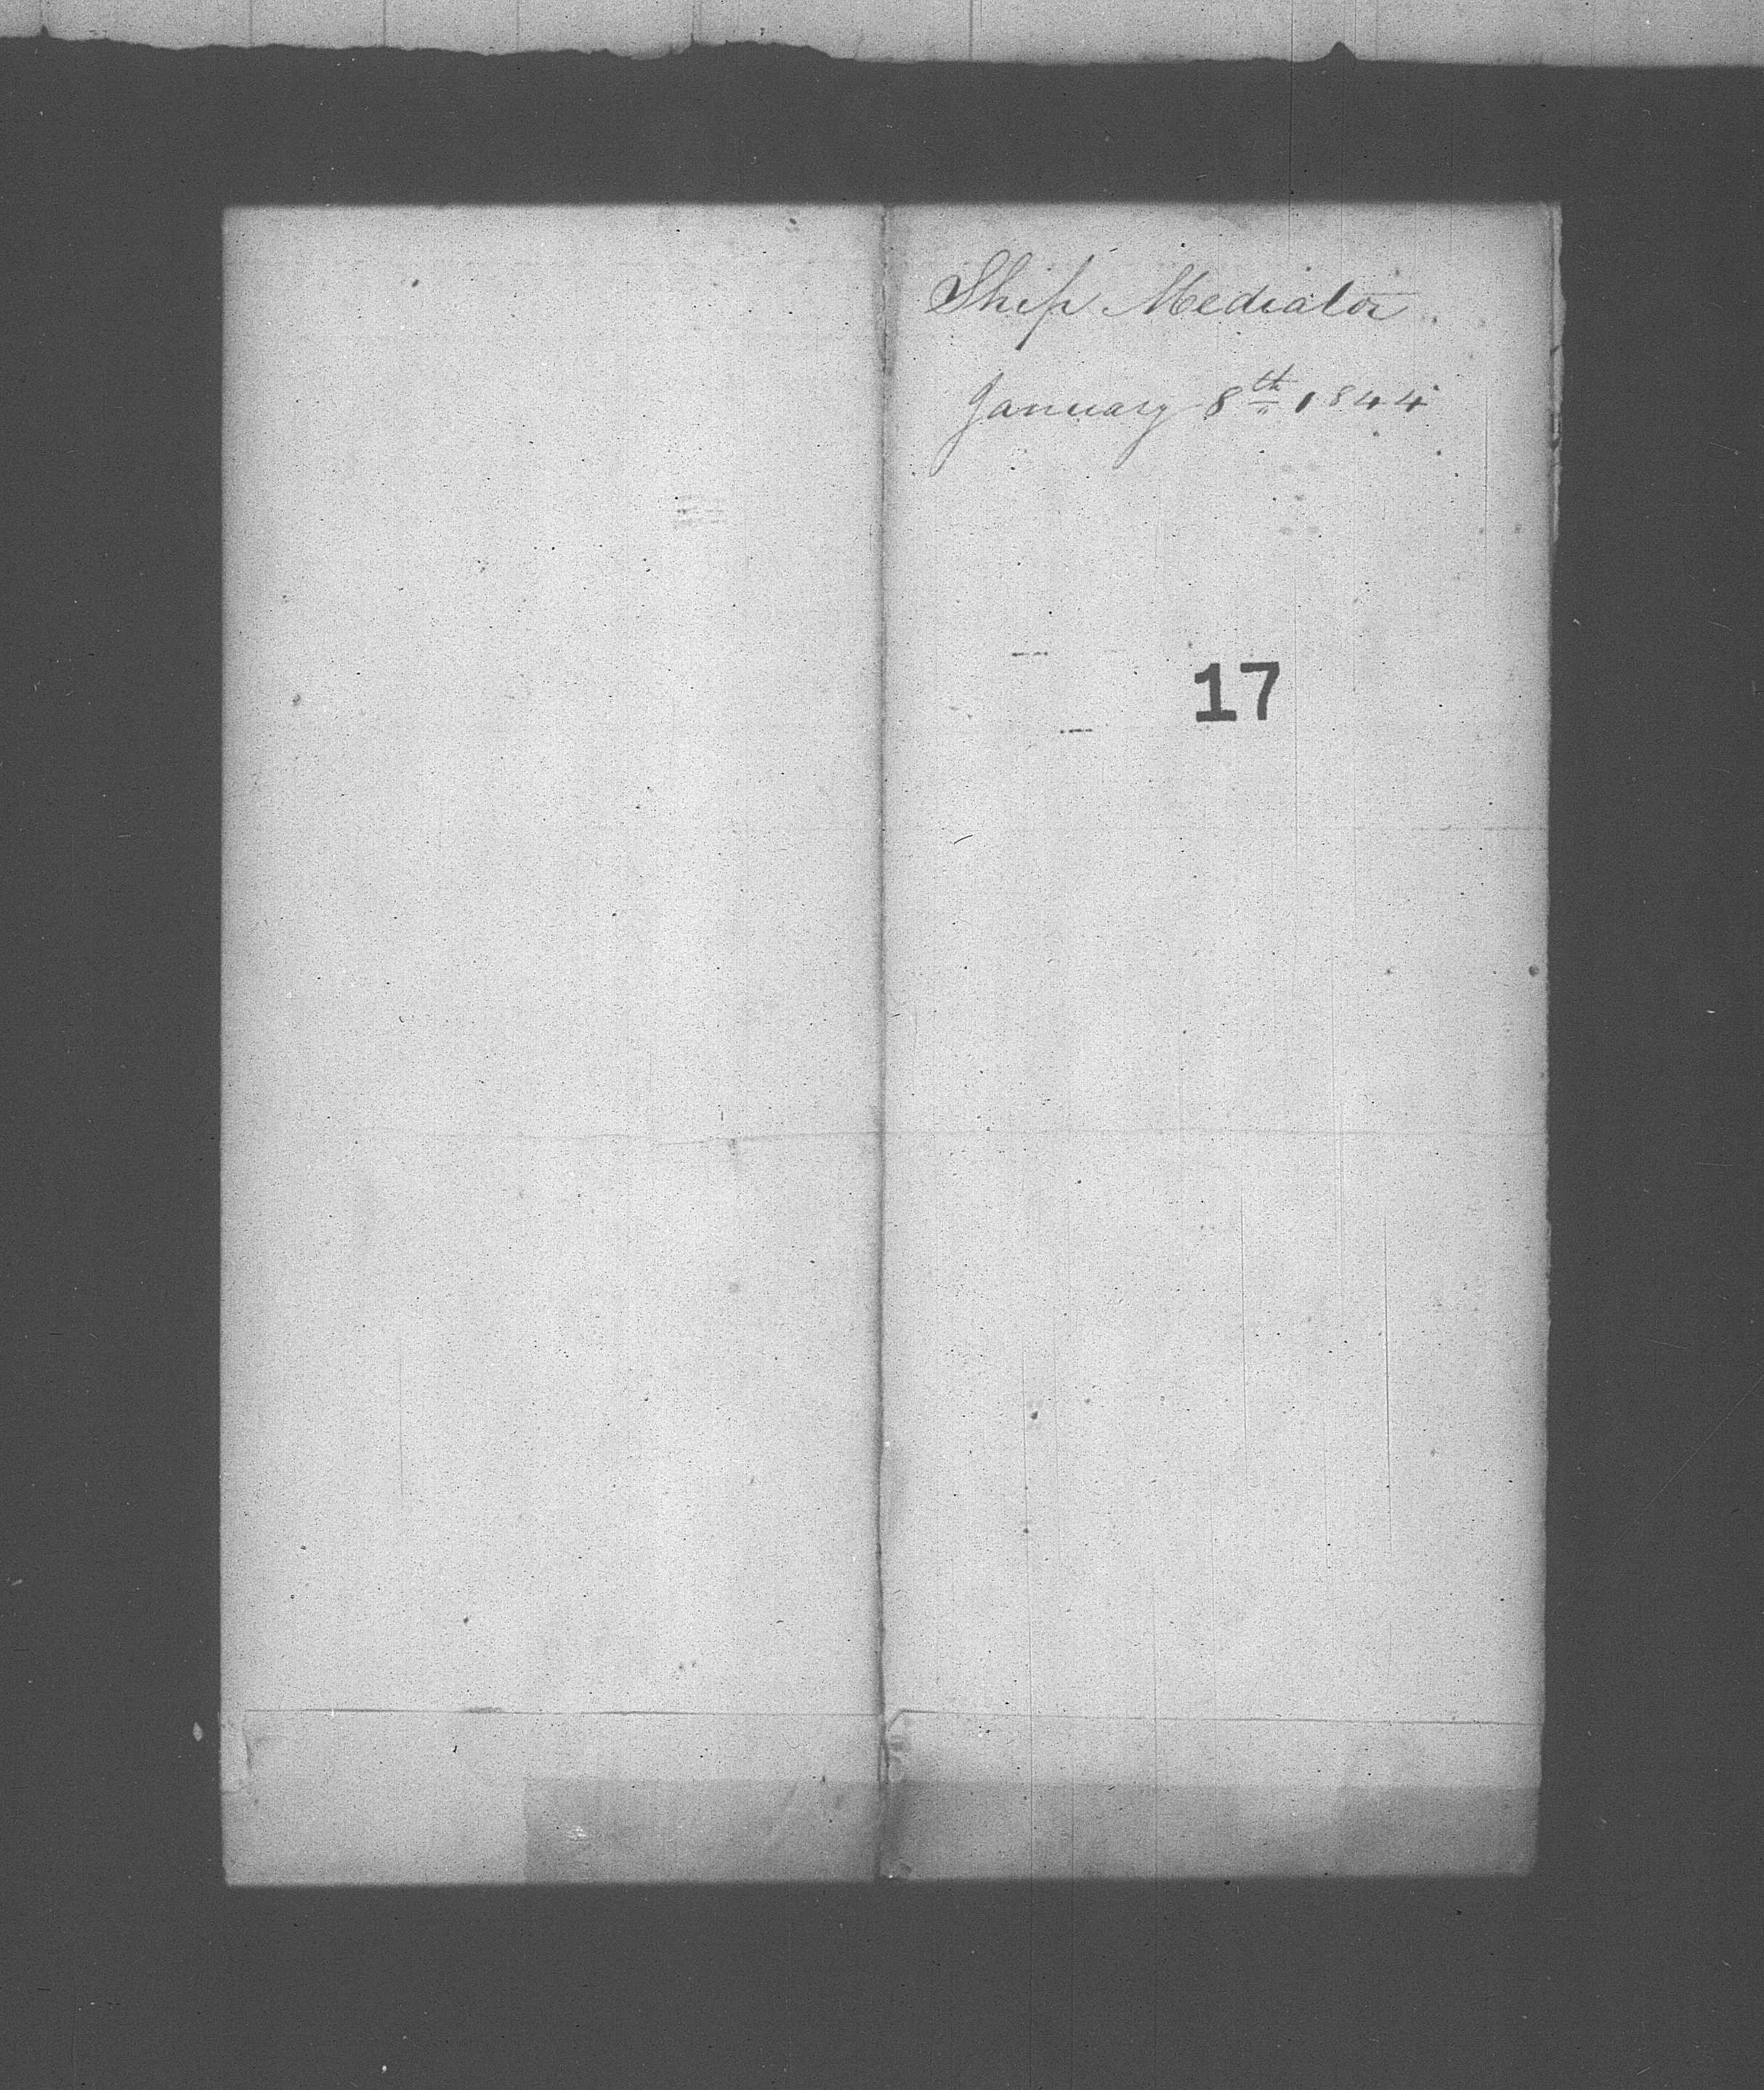 Ship Mediator
January 8th 1844
17